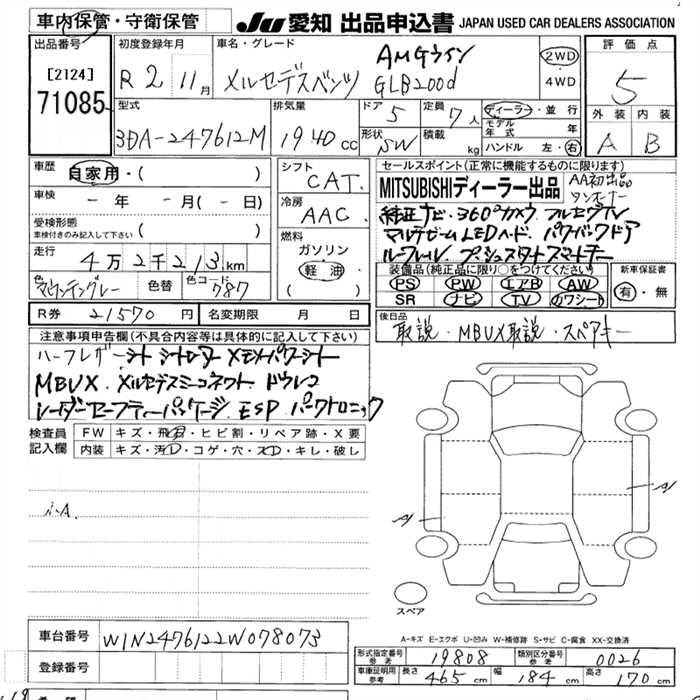 車内保管・守衛保管 JU愛知 出品申込書 JAPAN USED CAR DEALERS ASSOCIATION
出品番号 [2124] 71085
初度登録年月 R 2 11月
車名・グレード メルセデスベンツ AMGライン GLB200d
2WD・4WD
評価点 5
外装 A 内装 B
型式 3DA-247612M
排気量 1940 CC
ドア 5 定員 7人
形状 SW 積載 kg
ディーラー・並行
モデル年式 年
ハンドル 左・右
車歴 自家用・( )
車検 - 年 - 月(- 日)
受検形態 車検付きのみ記入して下さい ( )
走行 4万2千213km
色 マウンテングレー 色替 色コード 787
シフト CAT.
冷房 AAC.
燃料 ガソリン 軽油 ( )
セールスポイント(正常に機能するものに限ります)
MITSUBISHIディーラー出品 AA初出品 ワンオーナー
純正ナビ・360°カメラ フルセグTV
マルチビームLEDヘッド・パワーバックドア
ルーフレール プッシュスタートスマートキー
装備品(純正品に限り○をつけてください)
PS PW エアB AW
SR ナビ TV カワシート
新車保証書 有・無
R券 21570円 名変期限 月 日
後日品 取説・MBUX取説・スペアキー
注意事項申告欄(不具合内容等は具体的に記入して下さい)
ハーフレザーシート シートヒーター メモリパワーシート
MBUX. メルセデスミーコネクト ドラレコ
レーダーセーフティーパッケージ ESP パークトロニック
検査員記入欄 FW キズ・飛石・ヒビ割・リペア跡・X要
内装 キズ・汚レ・コゲ・穴・スレ・キレ・破レ
小A.
A
A
スペア
A-キズ E-エクボ U-凹み W-補修跡 S-サビ C-腐食 XX-交換済
車台番号 W1N2476122W078073
登録番号
形式指定番号 参考 19808 類別区分番号 参考 0026
車庫証明用 参考 長さ 465cm 幅 184cm 高さ 170cm